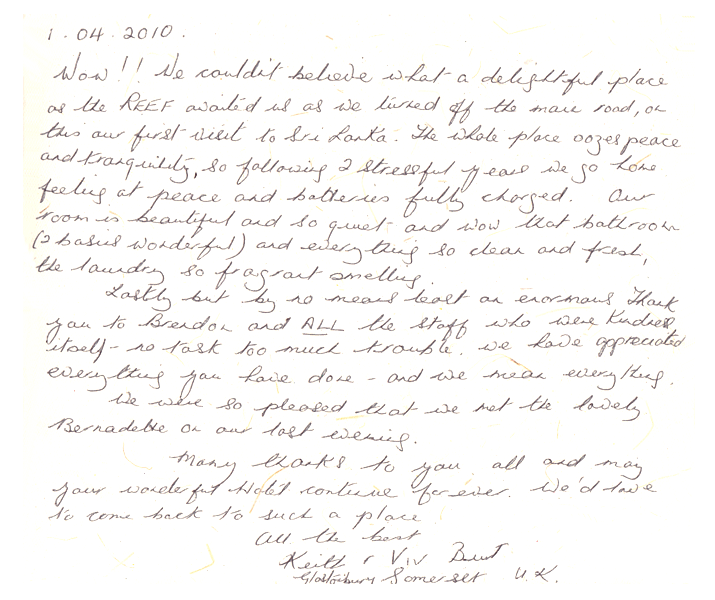 1.04.2010.
Wow!! We couldn't believe what a delightful place
as the REEF awaited us as we turned off the main road, on
this our first visit to Sri Lanka. The whole place oozes peace
and tranquility, so following 2 stressful years we go home
feeling at peace and batteries fully charged. Our
room is beautiful and so quiet and wow that bathroom
(2 basins wonderful) and everything so clean and fresh,
the laundry so fragrant smelling
Lastly but by no means least an enormous Thank
you to Brendon and ALL the staff who were kindness
itself - no task too much trouble. we have appreciated
everything you have done - and we mean everything.
We were so pleased that we met the lovely
Bernadette on our last evening.
Many thanks to you all and may
your wonderful Hotel continue for ever. We'd love
to come back to such a place
All the best
Keith & Viv
Glastonbury Somerset U.K.